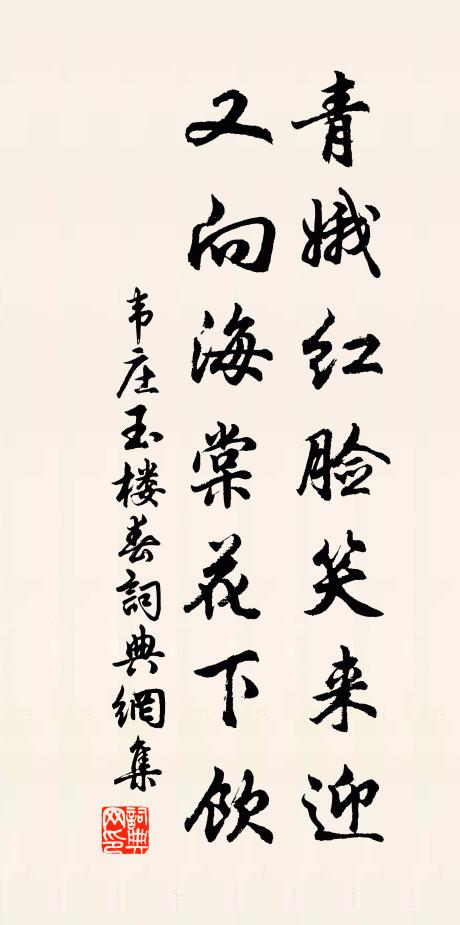 青娥红脸笑来迎
又向海棠花下饮
韦庄玉楼春詞典網集
詞典网印